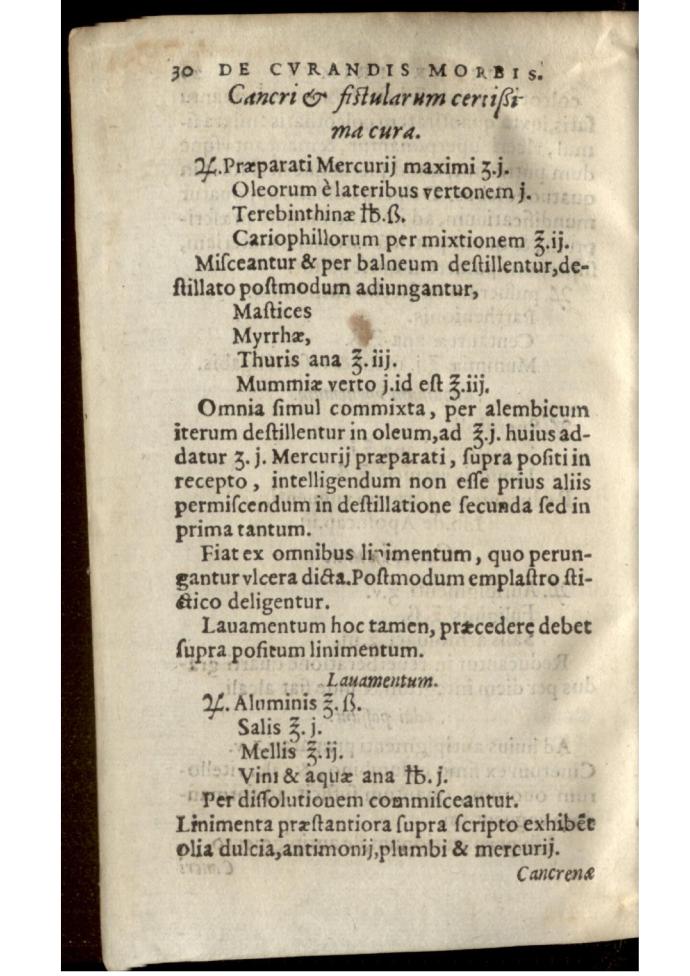 30 DE CVRANDIS MORBIS.
Cancri & fistularum certißi-
ma cura.
℞. Præparati Mercurij maximi ʒ.j.
Oleorum è lateribus vertonem j.
Terebinthinæ ℔.ß.
Cariophillorum per mixtionem ℥.ij.
Miſceantur & per balneum deſtillentur,de-
ſtillato poſtmodum adiungantur,
Maſtices
Myrrhæ,
Thuris ana ℥.iij.
Mummiæ verto j.id eſt ℥.iij.
Omnia ſimul commixta, per alembicum
iterum deſtillentur in oleum,ad ℥.j. huius ad-
datur ʒ.j. Mercurij præparati, ſupra poſiti in
recepto, intelligendum non eſſe prius aliis
permiſcendum in deſtillatione ſecunda ſed in
prima tantum.
Fiat ex omnibus linimentum, quo perun-
gantur vlcera dicta.Poſtmodum emplaſtro ſti-
ctico deligentur.
Lauamentum hoc tamen, præcedere debet
ſupra poſitum linimentum.
Lauamentum.
℞. Aluminis ℥.ß.
Salis ℥.j.
Mellis ℥.ij.
Vini & aquæ ana ℔.j.
Per diſſolutionem commiſceantur.
Linimenta præſtantiora ſupra ſcripto exhibẽt
olia dulcia,antimonij,plumbi & mercurij.
Cancrenæ